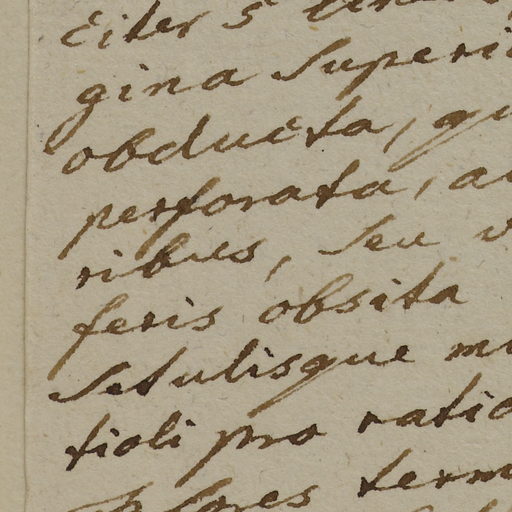 citer 5
gina superi
obducta, qu
perforata, a
ribus, seu v
feris obsita
setulisque m
tioli pro ratio
flores term